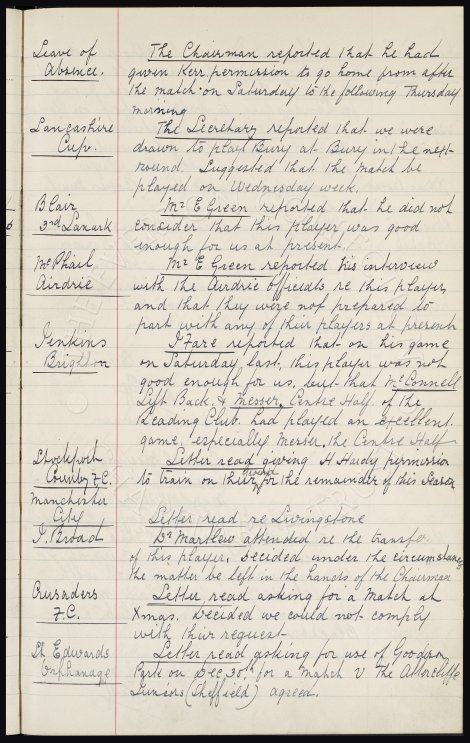 Leave of
Absence.
The Chairman reported that he had
given Kerr permission to go home from after
the match on Saturday to the following Thursday
morning
Lancashire
Cup.
The Secretary reported that we were
drawn to play Bury at Bury in the next
round. Suggested that the match be
played on Wednesday week.
Blair
3rd Lanark
Mr E Green reported that he did not
consider that this player was good
enough for us at present.
McPhail
Airdrie
Mr E Green reported his interview
with the Airdrie officials re this player
and that they were not prepared to
part with any of their players at present
Jenkins
Brighton
T Fare reported that on his game
on Saturday last, this player was not
good enough for us, but that McConnell
Left Back, & Messer, Centre Half of the
Reading Club had played an excellent
game, especially Messer, the Centre Half
Stockport
County F.C.
Letter read giving H Hardy permission
to train on their ground for the remainder of this season
Manchester
City
Letter read re Livingstone
T. Broad
Dr Martlew attended re the transfer
of this player, decided under the circumstances
the matter be left in the hands of the Chairman
Crusaders
F.C.
Letter read asking for a match at
Xmas. Decided we could not comply
with their request
St Edwards
Orphanage
Letter read asking for use of Goodison
Park on Dec 30th for a match v The Attercliffe
Juniors (Sheffield) agreed.